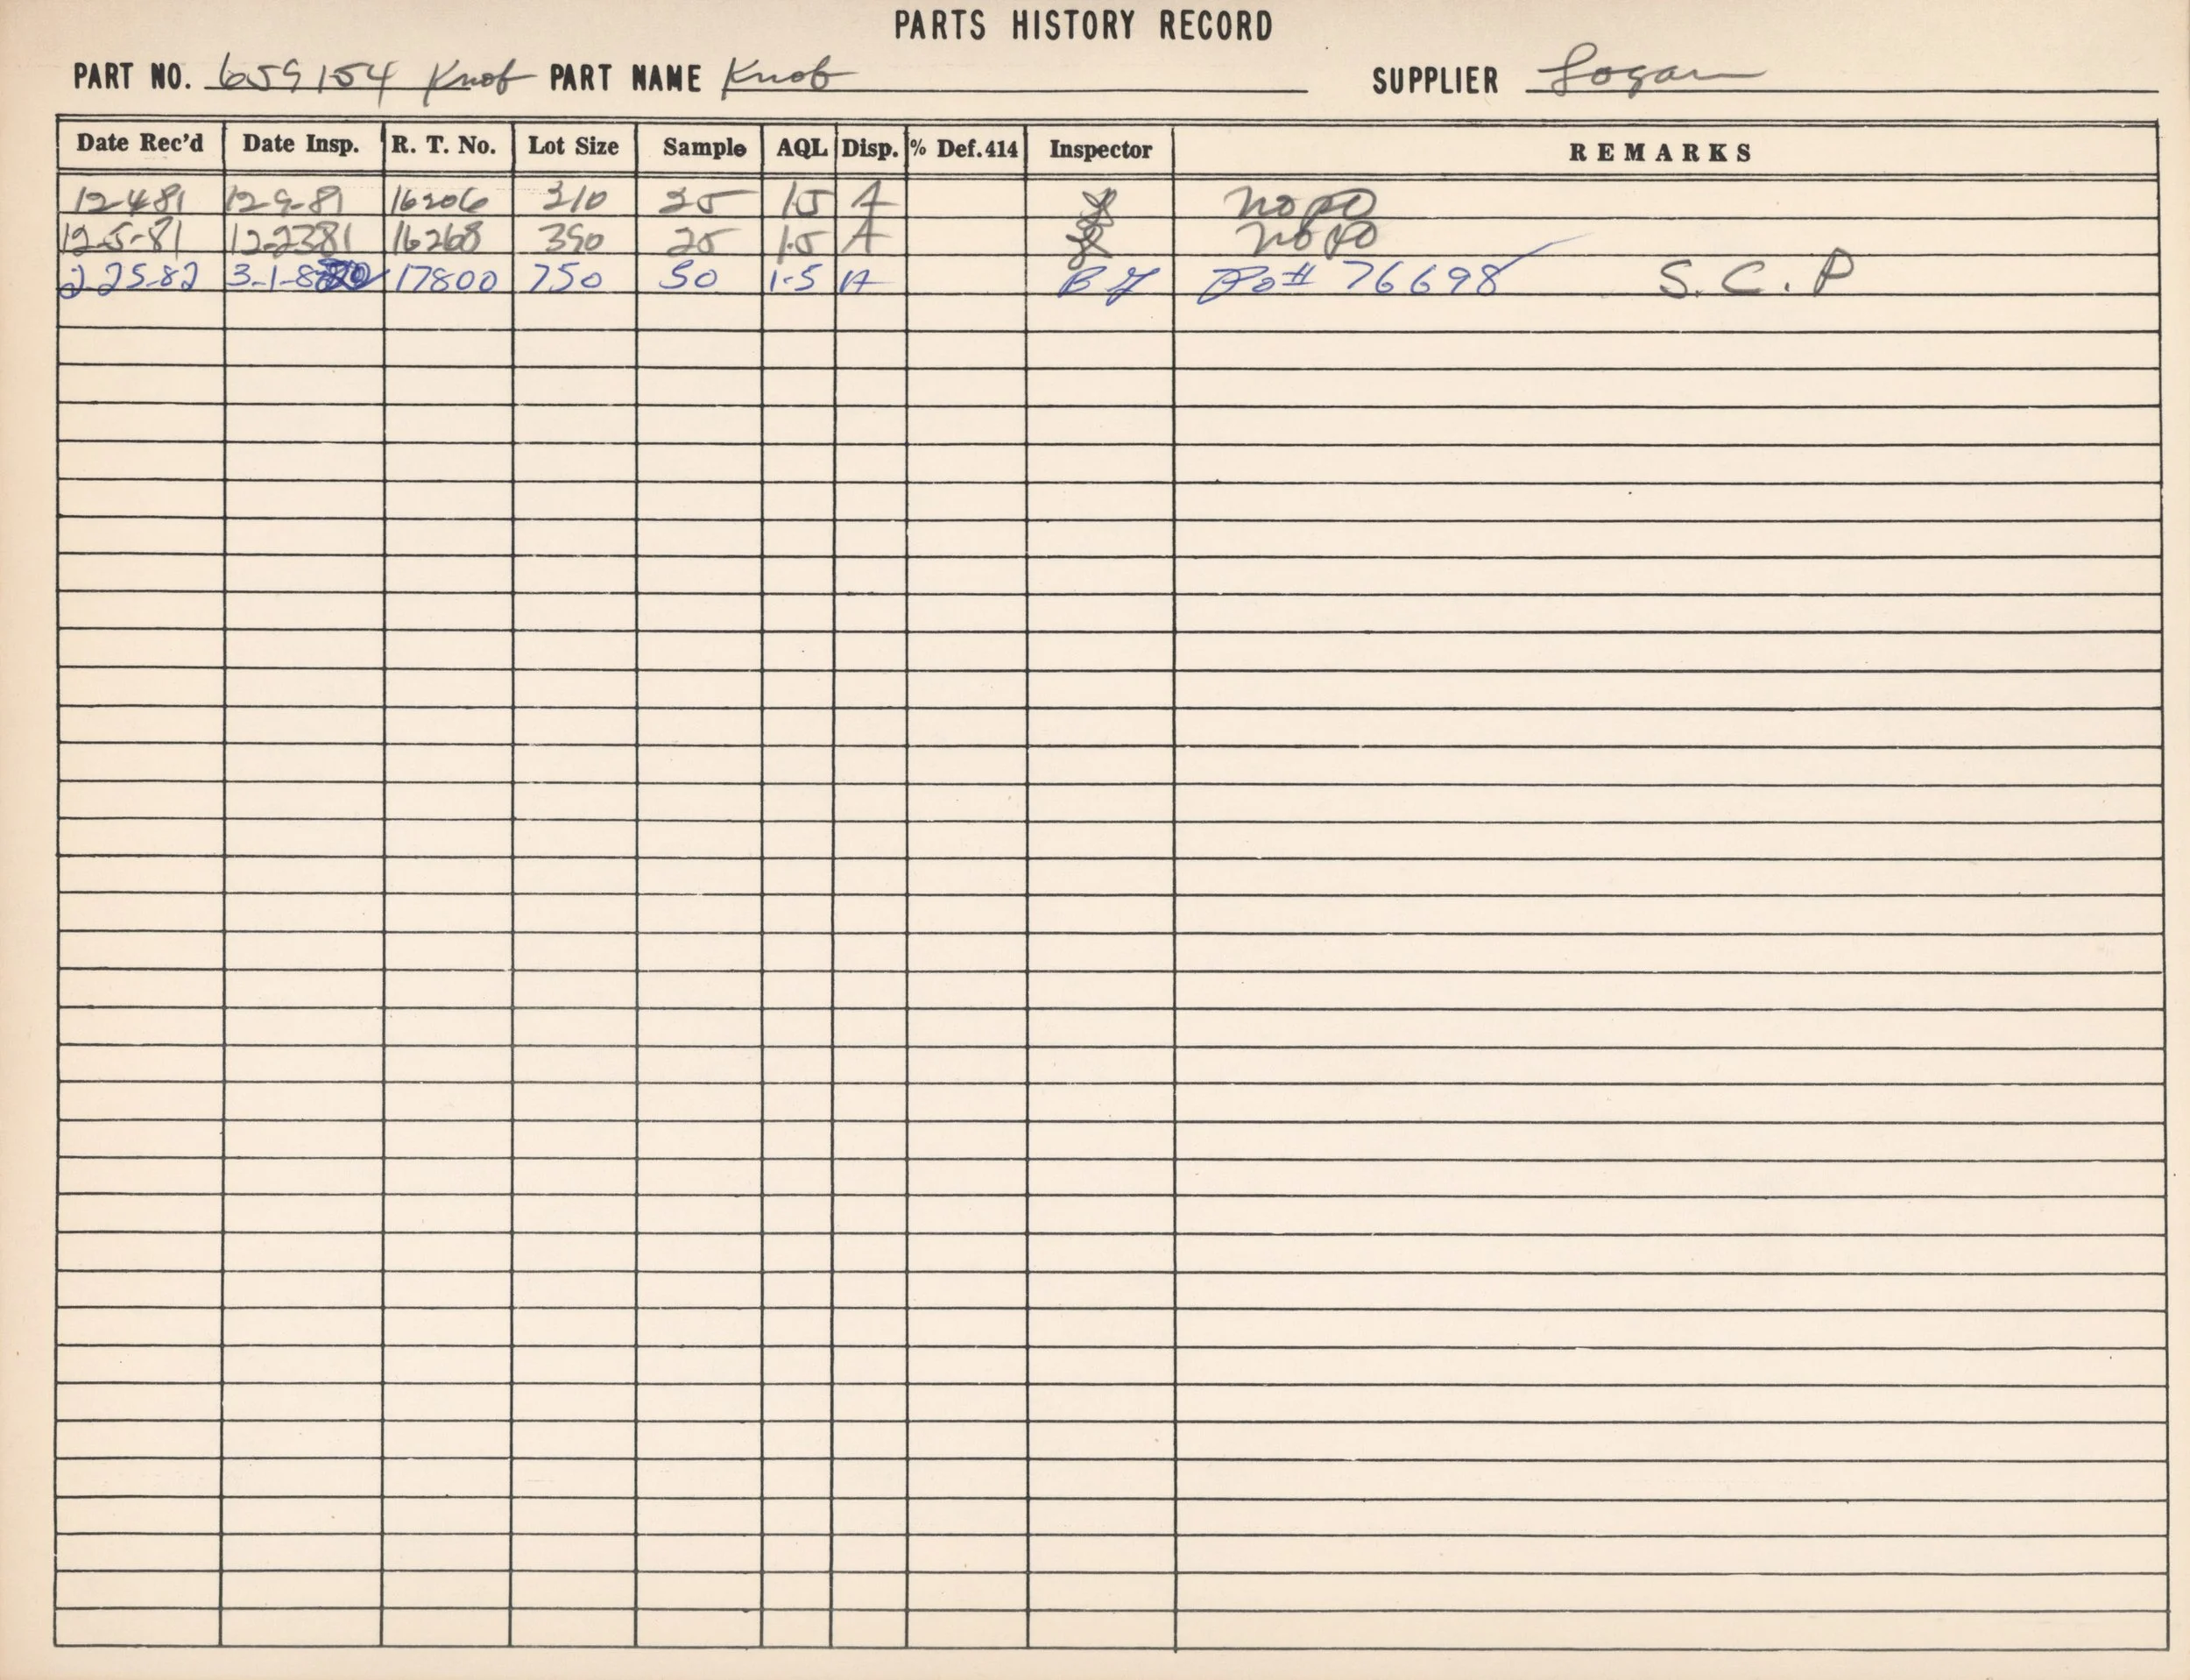 PARTS HISTORY RECORD
PART NO. 659154 Knob PART NAME Knob SUPPLIER Logan
Date Rec'd Date Insp. R. T. No. Lot Size Sample AQL Disp. % Def. 414 Inspector REMARKS
12-4-81 12-9-81 16206 310 25 1.5 A No PO
12-5-81 12-23-81 16268 390 25 1.5 A No PO
2-25-82 3-1-82 17800 750 50 1.5 A Po# 76698 S.C.P